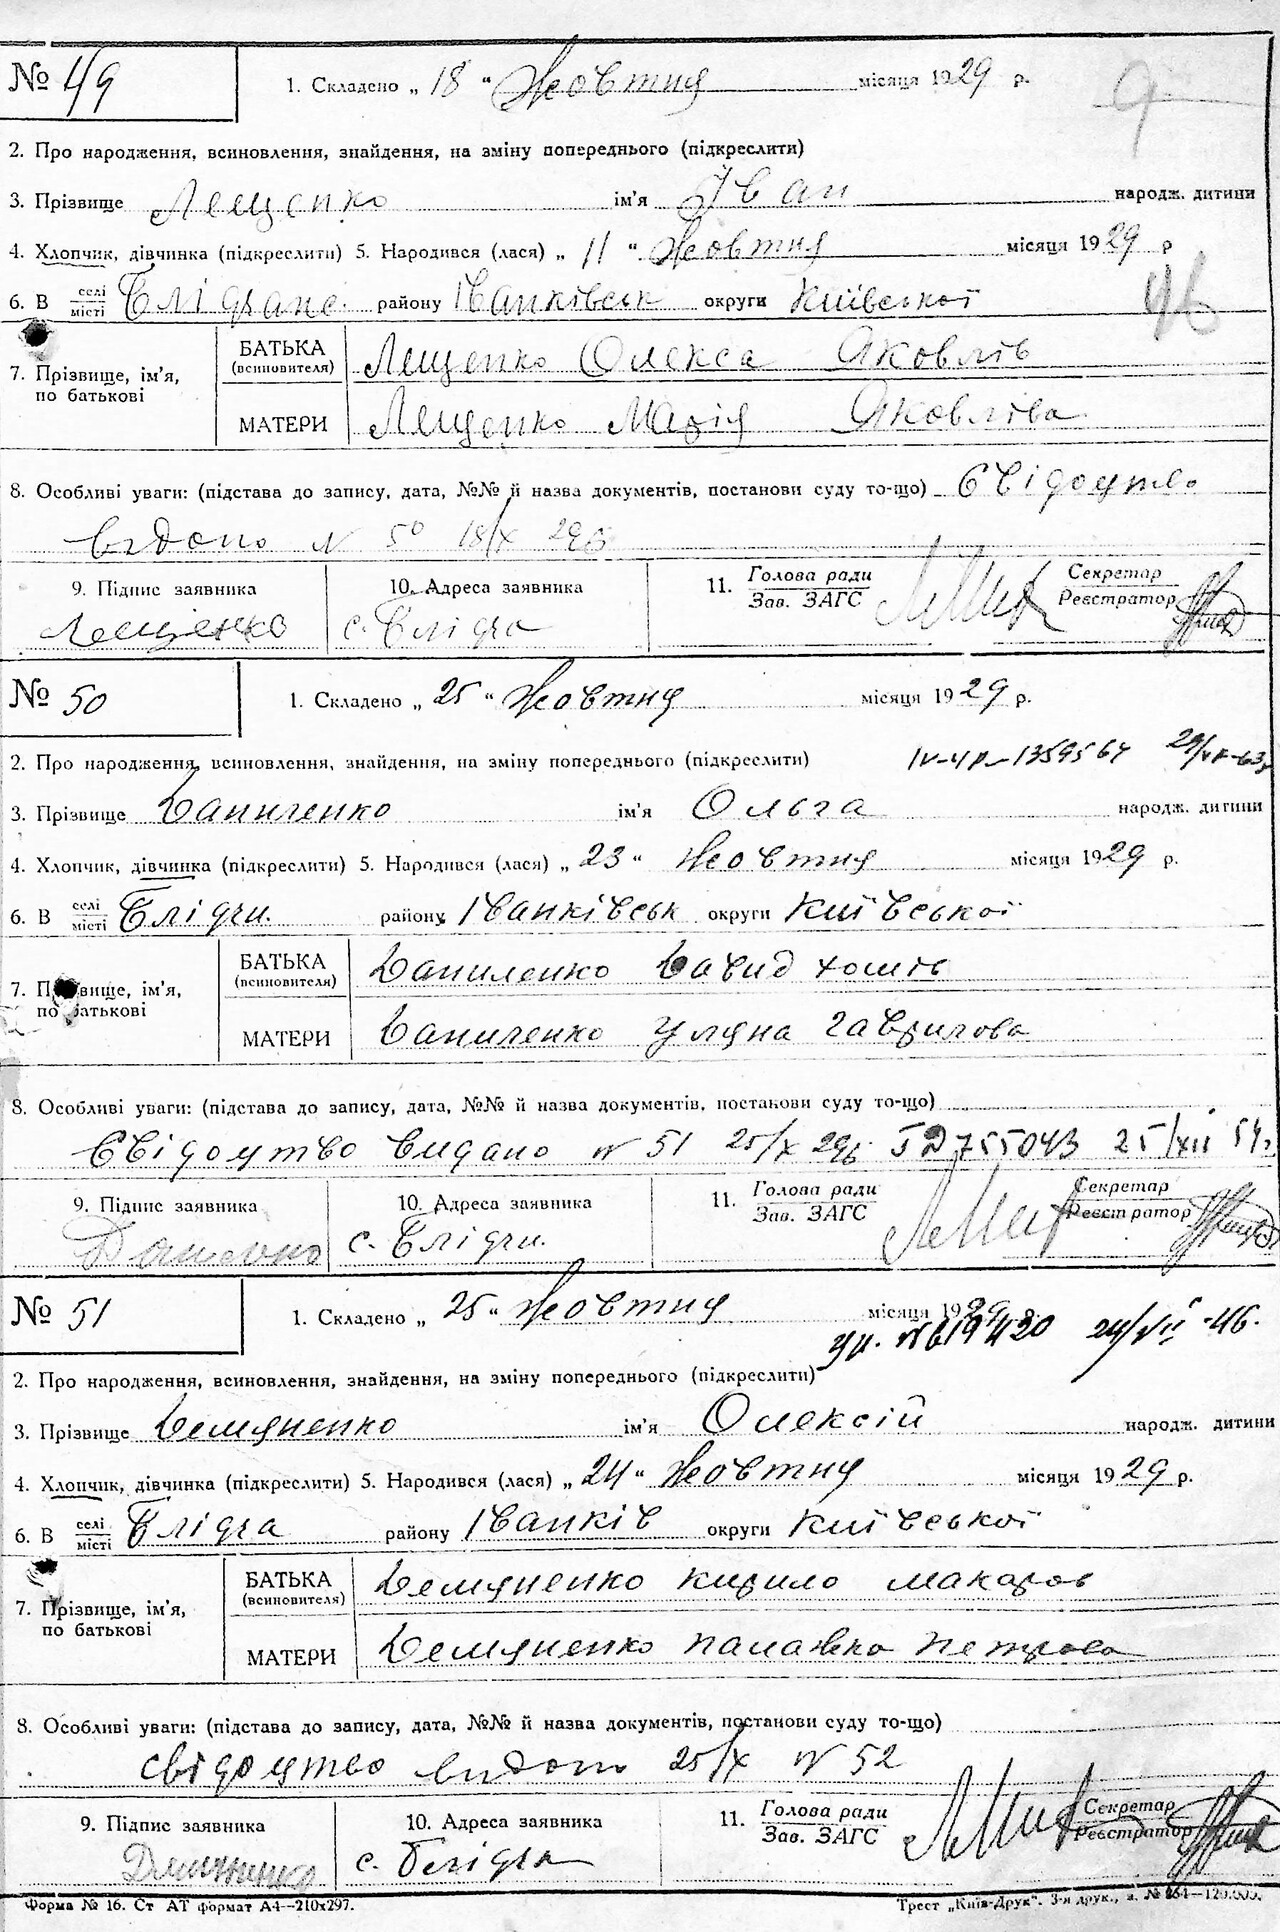 № 49
1. Складено „ 18 “ Жовтня місяця 1929 р.
9
2. Про народження, всиновлення, знайдення, на зміну попереднього (підкреслити)
3. Прізвище Лещенко ім'я Іван народж. дитини
4. Хлопчик, дівчинка (підкреслити) 5. Народився (лася) „ 11 “ Жовтня місяця 1929 р
6. В селі місті району Іванківськ округи Київської
46
7. Прізвище, ім'я, по батькові
БАТЬКА (всиновителя) Лещенко Олекса Яковлів
МАТЕРИ Лещенко Марія Яковліва
8. Особливі уваги: (підстава до запису, дата, №№ й назва документів, постанови суду то-що) Свідоцтво
видано N 50 18/X 29
9. Підпис заявника 10. Адреса заявника 11. Голова ради Зав. ЗАГС Секретар Реєстратор
Лещенко с. Блідча
№ 50
1. Складено „ 25 “ Жовтня місяця 1929 р.
2. Про народження, всиновлення, знайдення, на зміну попереднього (підкреслити)
3. Прізвище Даниленко ім'я Ольга народж. дитини
4. Хлопчик, дівчинка (підкреслити) 5. Народився (лася) „ 23 “ Жовтня місяця 1929 р.
6. В селі місті Блідчи. району Іванківськ округи Київської
7. Прізвище, ім'я, по батькові
БАТЬКА (всиновителя) Даниленко Давид Хомів
МАТЕРИ Даниленко Уляна Гаврилова
8. Особливі уваги: (підстава до запису, дата, №№ й назва документів, постанови суду то-що)
Свідоцтво видано N 51 25/X 29 755043 25/XII 54
9. Підпис заявника 10. Адреса заявника 11. Голова ради Зав. ЗАГС Секретар Реєстратор
с. Блідчи.
№ 51
1. Складено „ 25 “ Жовтня місяця 1929 р.
N 619420 24/VII - 46.
2. Про народження, всиновлення, знайдення, на зміну попереднього (підкреслити)
3. Прізвище Демяненко ім'я Олексій народж. дитини
4. Хлопчик, дівчинка (підкреслити) 5. Народився (лася) „ 24 “ Жовтня місяця 1929 р.
6. В селі місті Блідча району Іванків округи Київської
7. Прізвище, ім'я, по батькові
БАТЬКА (всиновителя) Демяненко Кирило Макаров
МАТЕРИ Демяненко Палажка Петрова
8. Особливі уваги: (підстава до запису, дата, №№ й назва документів, постанови суду то-що)
Свідоцтво видано 25/X N 52
9. Підпис заявника 10. Адреса заявника 11. Голова ради Зав. ЗАГС Секретар Реєстратор
с. Блідча
Форма № 16. Ст АТ формат А4—210х297. Трест „Київ-Друк“. 3-я друк.,